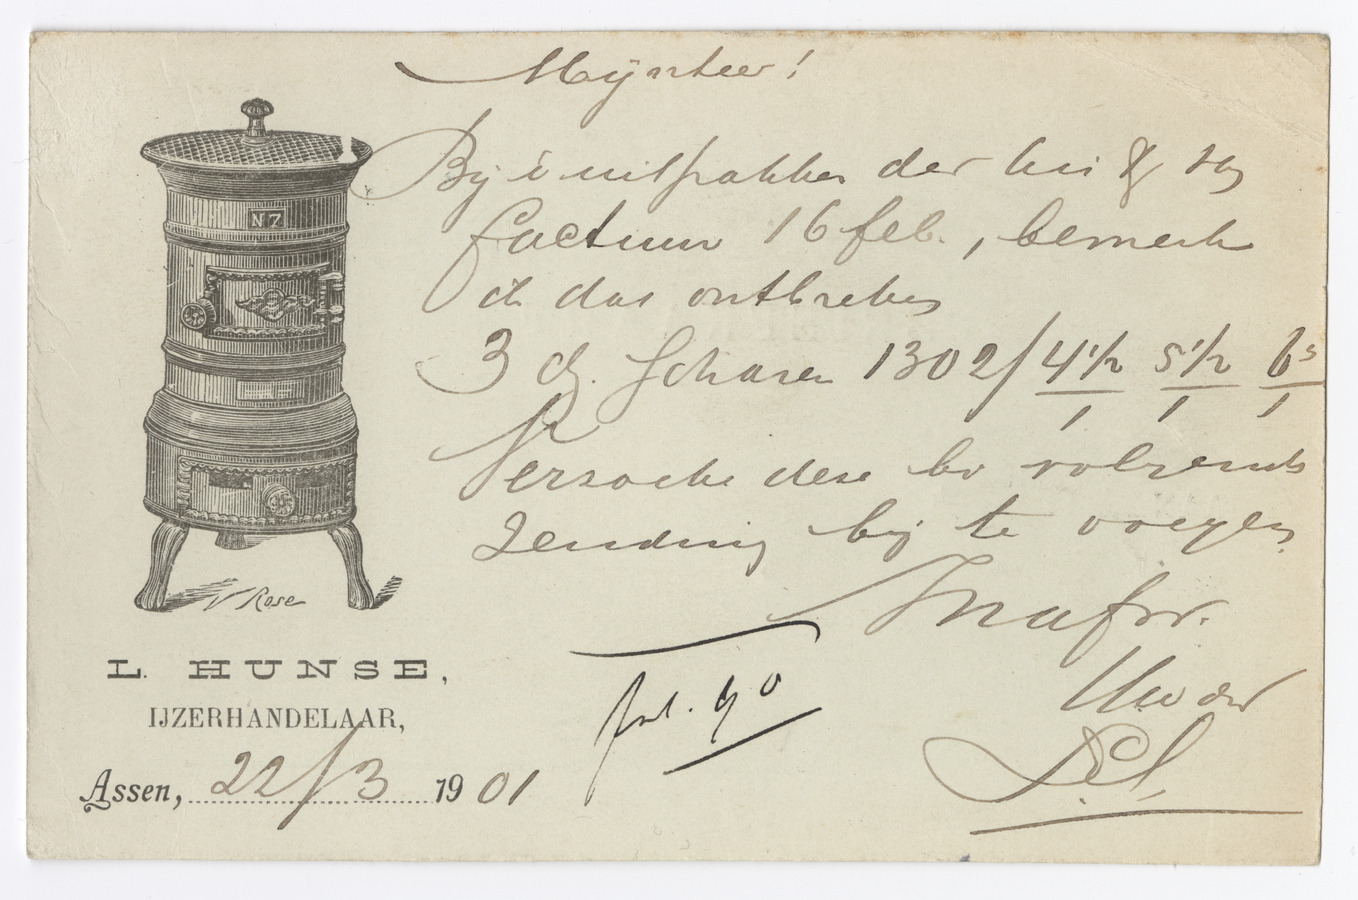 Mijnheer!
Bij 't uitpakken der kist
factuur 16 feb., bemerk
ik dat ontbreken
3 d. Scharen 1302/4½ 5½ 6
1 1 1
Versoeke deze bij volgende
zending bij te voegen
N 7
V Rose
L. HUNSE,
IJZERHANDELAAR,
Assen, 22/3 1901
Uw dr